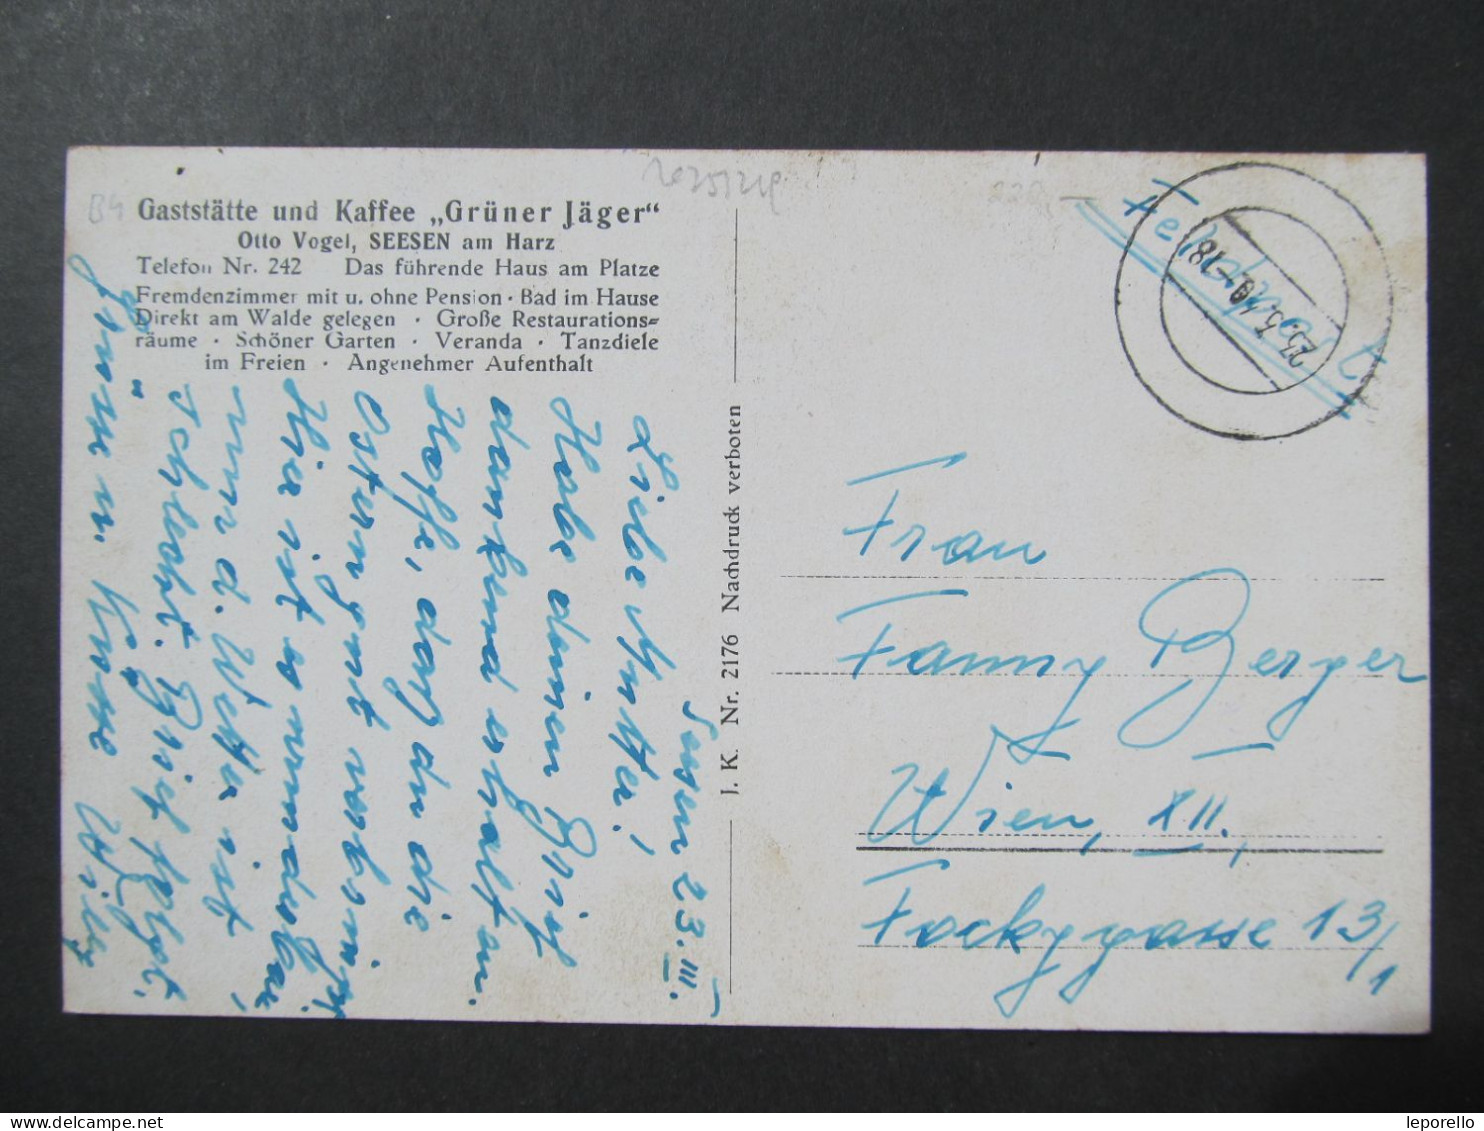 B4
Gaststätte und Kaffee „Grüner Jäger“
Otto Vogel, SEESEN am Harz
Telefon Nr. 242 Das führende Haus am Platze
Fremdenzimmer mit u. ohne Pension · Bad im Hause
Direkt am Walde gelegen · Große Restaurations=
räume · Schöner Garten · Veranda · Tanzdiele
im Freien · Angenehmer Aufenthalt
Seesen 23. III.
Liebe Mutter!
Habe deinen Brief
dankend erhalten.
Hoffe, daß du die
Ostern gut verbringst.
Hier ist es wunderbar,
nur d. Wetter ist
schlecht. Brief folgt.
Grüsse u. Küsse Willy
J. K. Nr. 2176 Nachdruck verboten
Feldpost
23.3.40-18
Frau
Fanny Berger
Wien, XII.,
Fockygasse 13/1
leporello